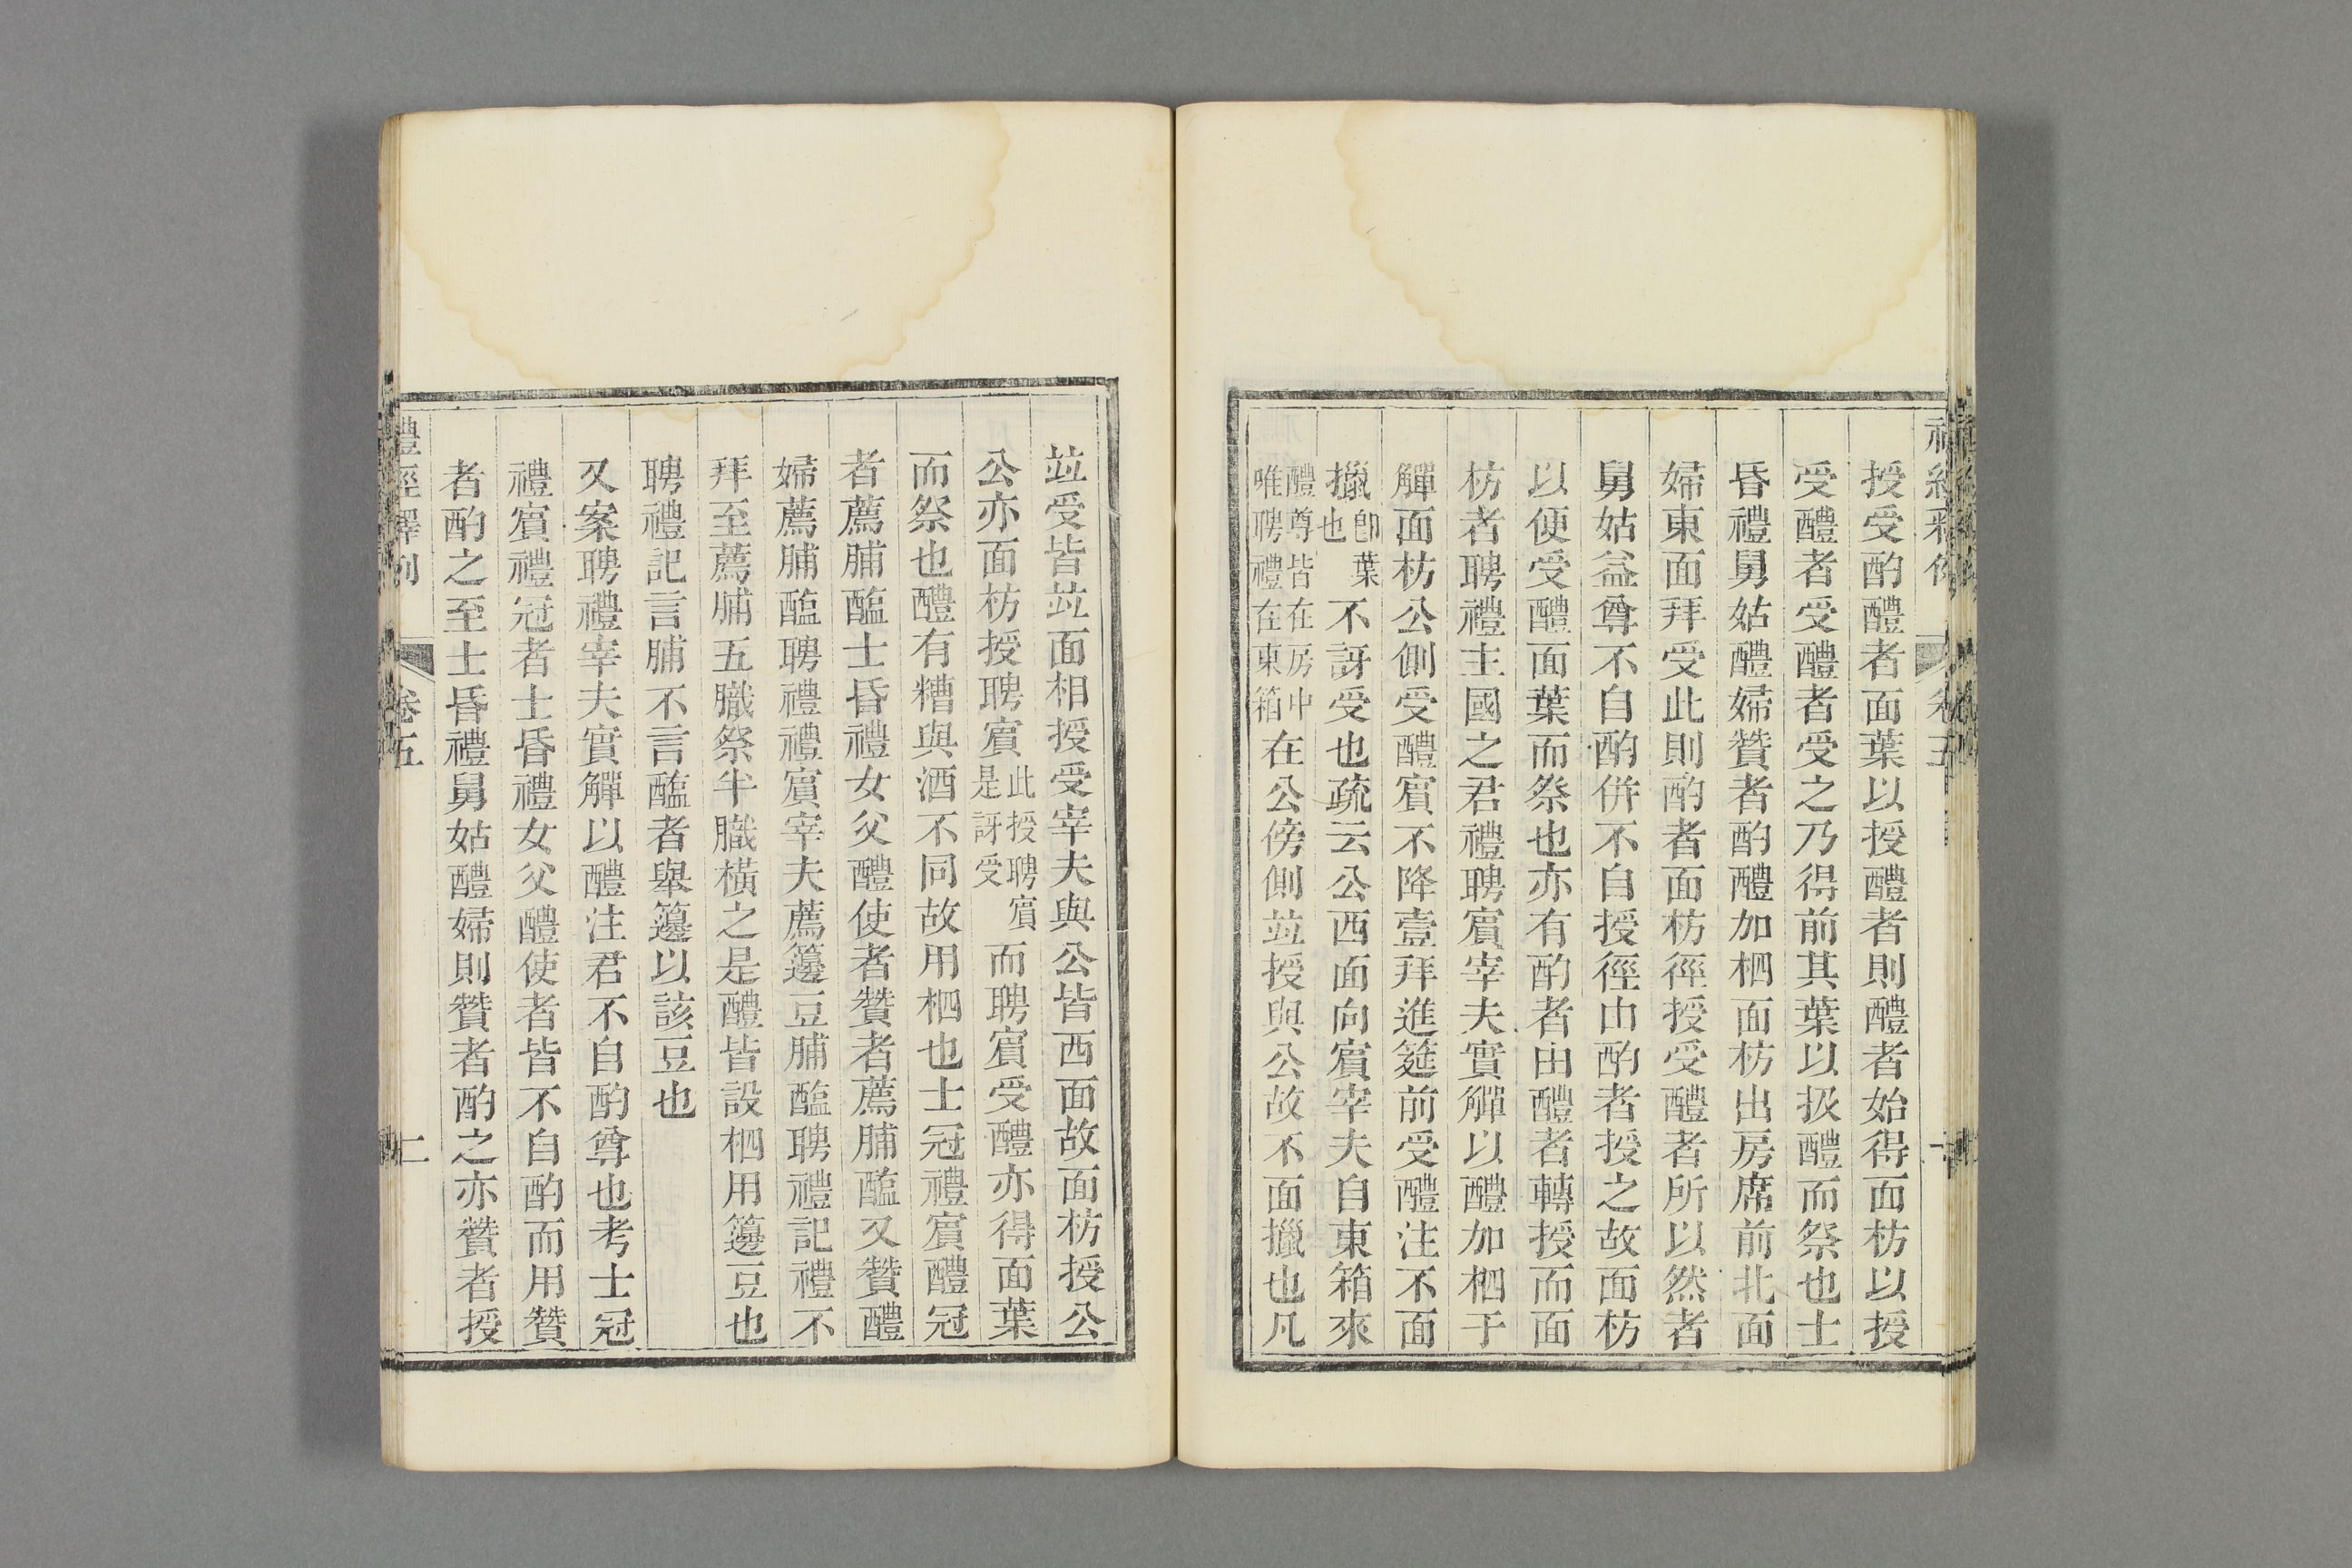 授受酌醴者面葉以授醴者則醴者始得面枋以授
受醴者受醴者受之乃得前其葉以扱醴而祭也士
昏禮舅姑醴婦贊者酌醴加柶面枋出房席前北面
婦東面拜受此則酌者面枋徑授受醴者所以然者
舅姑益尊不自酌併不自授徑由酌者授之故面枋
以便受醴面葉而祭也亦有酌者由醴者轉授而面
枋者聘禮主國之君禮聘賓宰夫實觶以醴加柶于
觶面枋公側受醴賓不降壹拜進筵前受醴注不面
擸卽葉也不訝受也疏云公西面向賓宰夫自東箱來
醴尊皆在房中唯聘禮在東箱在公傍側竝授與公故不面擸也凡
竝受皆竝面相授受宰夫與公皆西面故面枋授公
公亦面枋授聘賓此授聘賓是訝受而聘賓受醴亦得面葉
而祭也醴有糟與酒不同故用柶也士冠禮賓醴冠
者薦脯醢士昏禮女父醴使者贊者薦脯醢又贊醴
婦薦脯醢聘禮禮賓宰夫薦籩豆脯醢聘禮記禮不
拜至薦脯五膱祭半膱橫之是醴皆設柶用籩豆也
聘禮記言脯不言醢者舉籩以該豆也
又案聘禮宰夫實觶以醴注君不自酌尊也考士冠
禮賓禮冠者士昏禮女父醴使者皆不自酌而用贊
者酌之至士昏禮舅姑醴婦則贊者酌之亦贊者授
禮經釋例 卷五